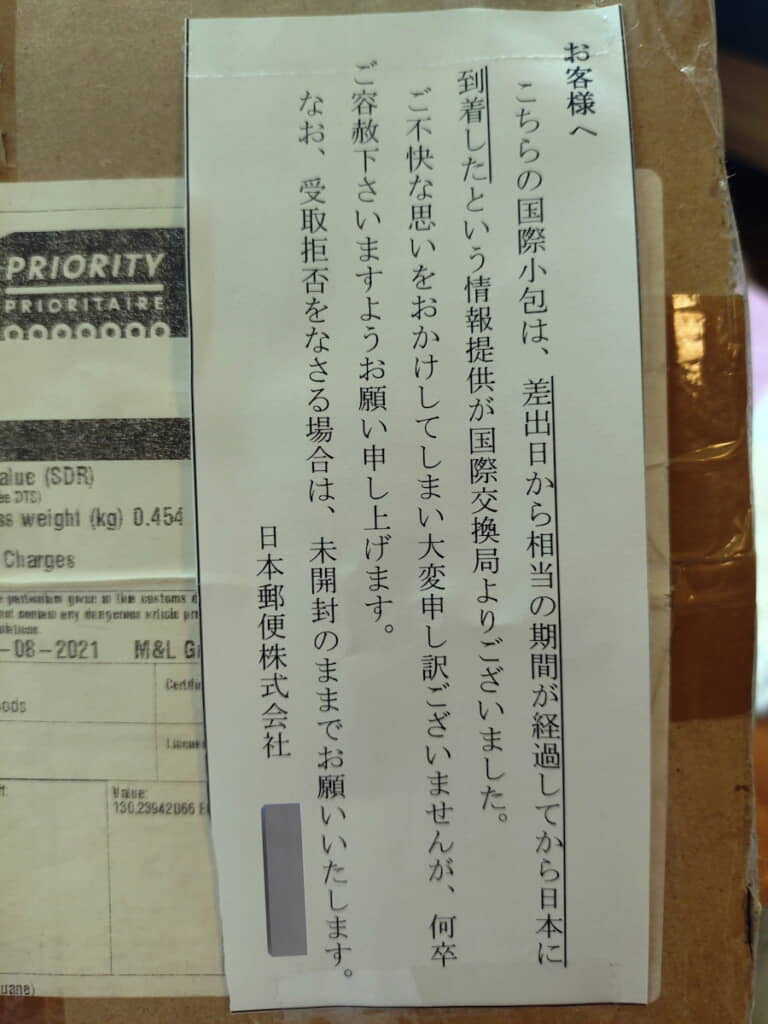 お客様へ
こちらの国際小包は、差出日から相当の期間が経過してから日本に
到着したという情報提供が国際交換局よりございました。
ご不快な思いをおかけしてしまい大変申し訳ございませんが、何卒
ご容赦下さいますようお願い申し上げます。
なお、受取拒否をなさる場合は、未開封のままでお願いいたします。
日本郵便株式会社
PRIORITY
PRIORITAIRE
alue (SDR)
ss weight (kg) 0.454
Charges
-08-2021 M&L G
ods
Value:
130.23942066 E
uane)